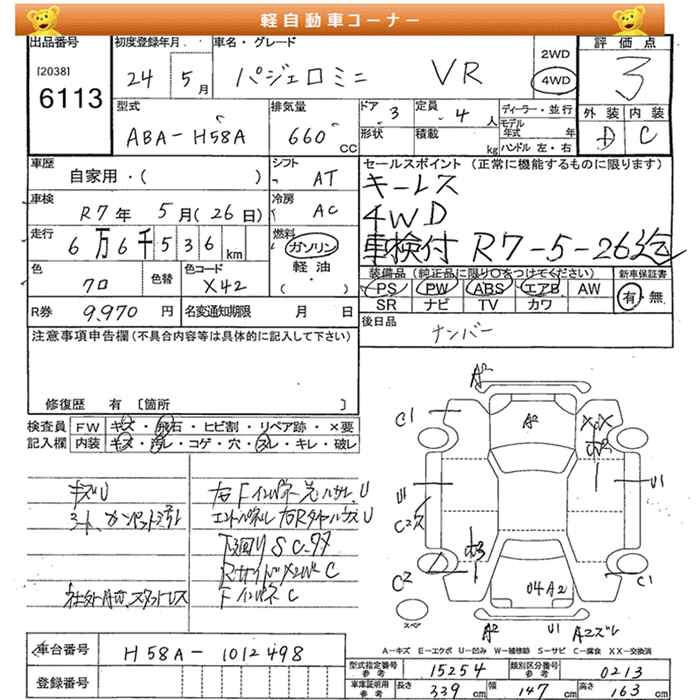 軽自動車コーナー
出品番号 初度登録年月 車名・グレード 2WD 4WD 評価点
[2038] 6113 24 5月 パジェロミニ VR 3
型式 排気量 ドア 3 定員 4人 ディーラー・並行 外装 内装
ABA-H58A 660cc 形状 積載 kg モデル年式 年 D C
ハンドル 左・右
車歴 自家用・( ) シフト AT セールスポイント (正常に機能するものに限ります)
キーレス
車検 R7年 5月(26日) 冷房 AC 4WD
走行 6万6千536km 燃料 ガソリン 軽油 車検付 R7-5-26迄
( )
色 クロ 色替 色コード X42 装備品 (純正品に限り○をつけてください) 新車保証書
PS PW ABS エアB AW 有・無
R券 9,970円 名変通知期限 月 日 SR ナビ TV カワ
注意事項申告欄 (不具合内容等は具体的に記入して下さい) 後日品 ナンバー
修復歴 有 [箇所 ]
検査員 FW キズ・飛石・ヒビ割・リペア跡・×要
記入欄 内装 キズ・汚レ・コゲ・穴・スレ・キレ・破レ
キズU
下回りSC
FインパネC
社外 スタットレス
A2
C1 A2 XX
U1 U1
C2
C2 C1
04A2
スペア
A2 U1 A2ズレ
A-キズ E-エクボ U-凹み W-補修跡 S-サビ C-腐食 XX-交換済
車台番号 H58A-1012498
登録番号
型式指定番号 参考 15254 類別区分番号 参考 0213
車庫証明用 参考 長さ 339cm 幅 147cm 高さ 163cm